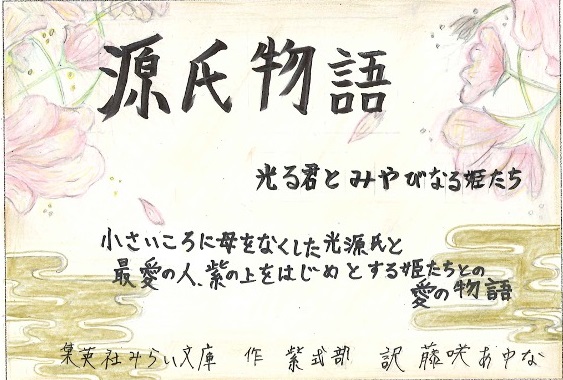 源氏物語
光る君とみやびなる姫たち
小さいころに母をなくした光源氏と
最愛の人、紫の上をはじめとする姫たちとの
愛の物語
集英社みらい文庫 作 紫式部 訳 藤咲あゆな